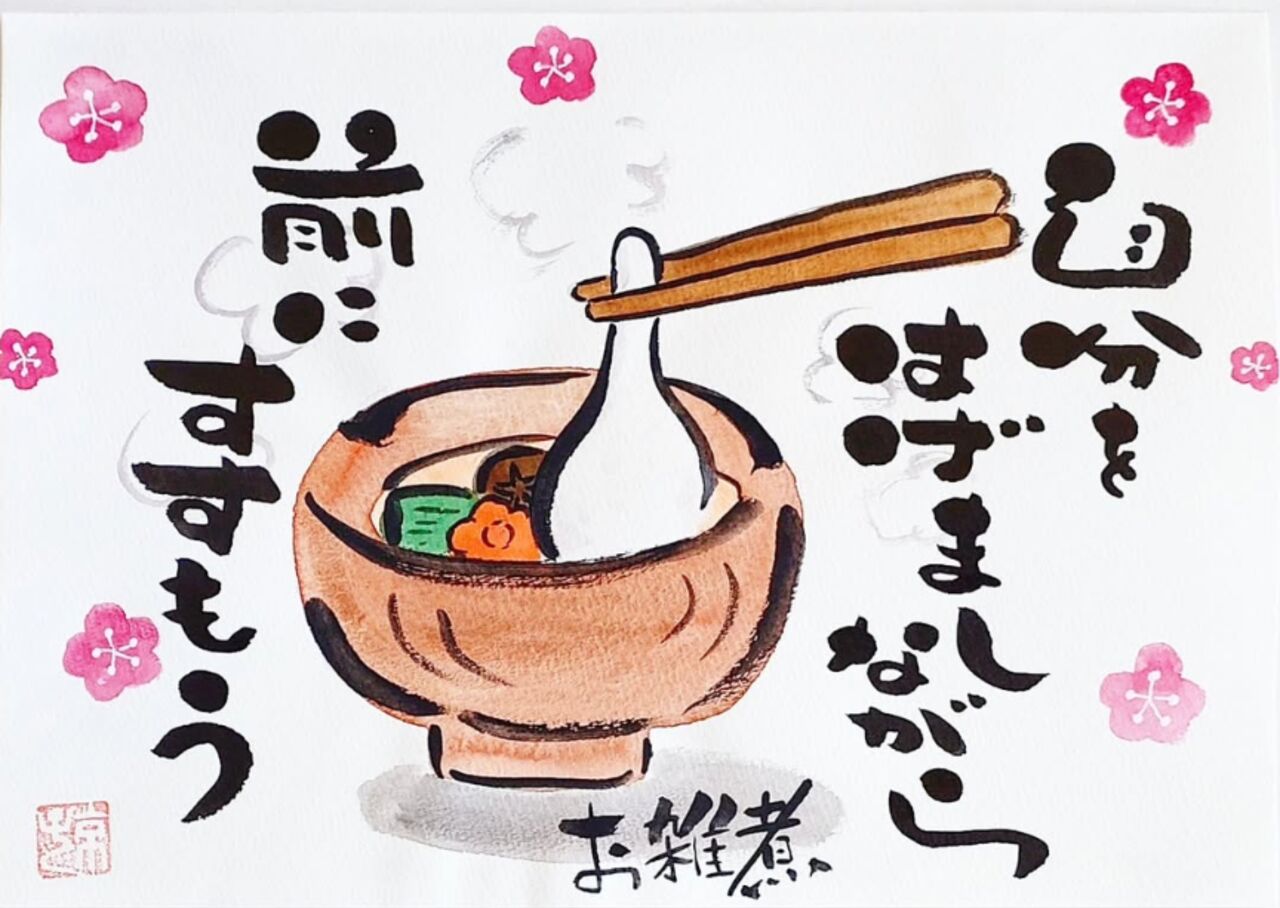 自分を
はげまし
ながら
前に
すすもう
お雑煮